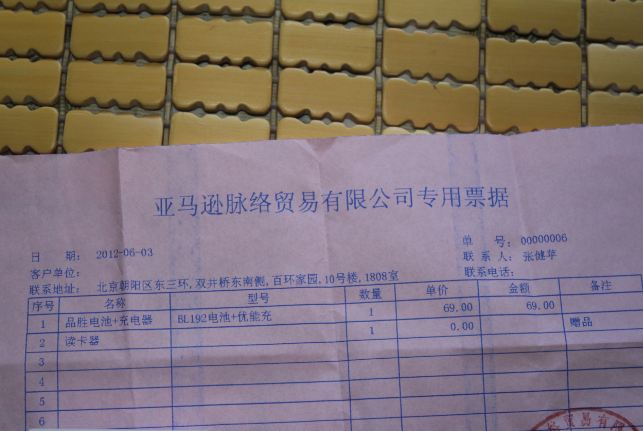 亚马逊脉络贸易有限公司专用票据
日 期: 2012-06-03
单 号: 00000006
客户单位:
联系人: 张健苹
联系地址: 北京朝阳区东三环,双井桥东南侧,百环家园,10号楼,1808室
联系电话:
序号 名称 型号 数量 单价 金额 备注
1 品胜电池+充电器 BL192电池+优能充 1 69.00 69.00
2 读卡器 1 0.00 赠品
3
4
5
6
贸易有限